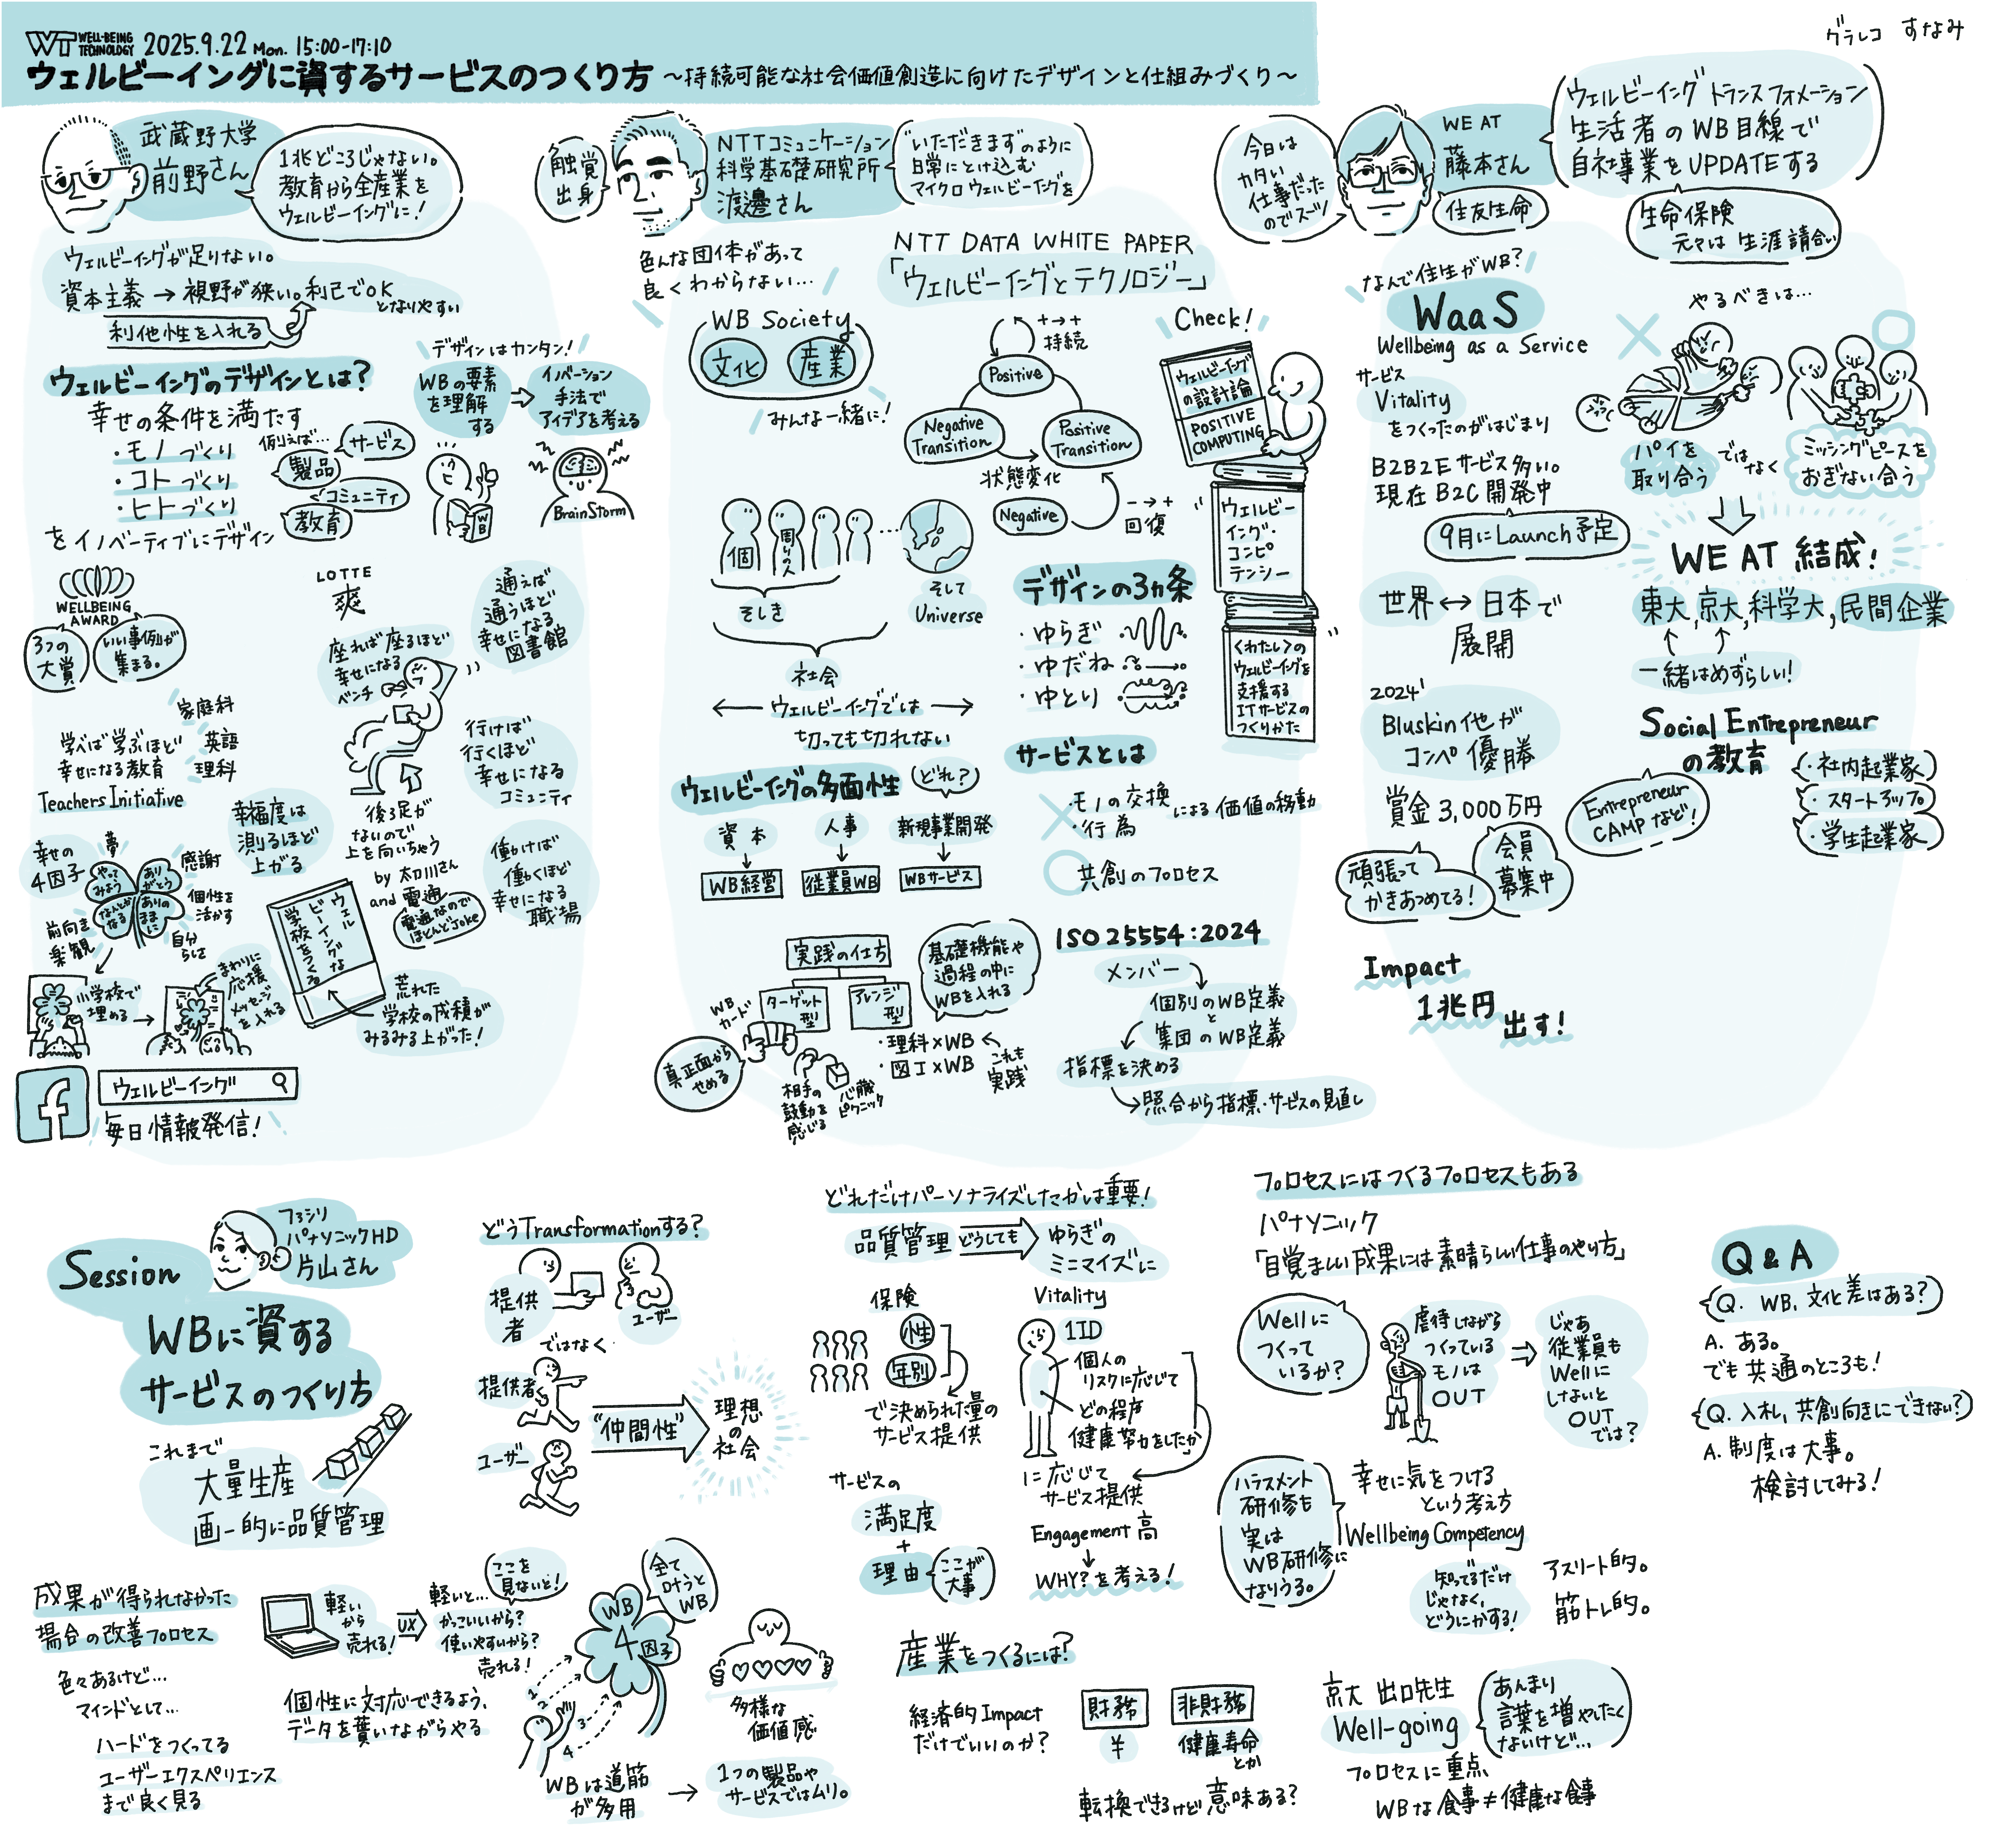 WT WELL-BEING TECHNOLOGY 2025.9.22 Mon. 15:00-17:10
ウェルビーイングに資するサービスのつくり方 〜持続可能な社会価値創造に向けたデザインと仕組みづくり〜
グラレコ すなみ
武蔵野大学
前野さん
1兆どころじゃない。
教育から全産業を
ウェルビーイングに!
ウェルビーイングが足りない。
資本主義→視野が狭い。利己でOK
となりやすい
利他性を入れる
ウェルビーイングのデザインとは?
幸せの条件を満たす
・モノづくり
・コトづくり
・ヒトづくり
例えば…
サービス
製品
コミュニティ
教育
をイノベーティブにデザイン
デザインはカンタン!
WBの要素
を理解
する
イノベーション
手法で
アイデアを考える
WB
BrainStorm
WELLBEING
AWARD
3つの
大賞
いい事例が
集まる。
LOTTE
爽
座れば座るほど
幸せになる
ベンチ
通えば
通うほど
幸せになる
図書館
家庭科
英語
理科
学べば学ぶほど
幸せになる教育
Teachers Initiative
行けば
行くほど
幸せになる
コミュニティ
後ろ足が
ないので
上を向いちゃう
by 太刀川さん
and 電通
電通なので
ほとんどJoke
働けば
働くほど
幸せになる
職場
幸福度は
測るほど
上がる
幸せの
4因子
夢
やって
みよう
感謝
あり
がとう
個性を
活かす
ありの
ままに
自分
らしさ
前向き
楽観
なんとか
なる
小学校で
埋める
まわりに
応援
メッセージ
を入れる
ウェル
ビーイングな
学校をつくる
荒れた
学校の成績が
みるみる上がった!
f
ウェルビーイング
毎日情報発信!
触覚
出身
NTTコミュニケーション
科学基礎研究所
渡邊さん
"いただきます"のように
日常にとけ込む
マイクロウェルビーイングを
色んな団体があって
良くわからない…
WB Society
文化 産業
みんな一緒に!
NTT DATA WHITE PAPER
「ウェルビーイングとテクノロジー」
+→+
持続
Positive
Negative
Transition
Positive
Transition
状態変化
Negative
−→+
回復
Check!
ウェルビーイング
の設計論
POSITIVE
COMPUTING
ウェルビー
イング・
コンピ
テンシー
<わたし>の
ウェルビーイングを
支援する
ITサービスの
つくりかた
個
周りの人
そしき
社会
そして
Universe
ウェルビーイングでは
切っても切れない
デザインの3ヵ条
・ゆらぎ
・ゆだね
・ゆとり
ウェルビーイングの多面性
どれ?
資本
人事
新規事業開発
WB経営
従業員WB
WBサービス
サービスとは
・モノの交換
・行為
による価値の移動
共創のプロセス
実践の仕方
ターゲット
型
アレンジ
型
WB
カード
真正面から
せめる
相手の
鼓動を
感じる
心臓
ピクニック
基礎機能や
過程の中に
WBを入れる
・理科×WB
・図工×WB
これも
実践
ISO 25554:2024
メンバー
個別のWB定義
と
集団のWB定義
指標を決める
照合から指標・サービスの見直し
今日は
カタい
仕事だった
のでスーツ!
WE AT
藤本さん
住友生命
ウェルビーイングトランスフォメーション
生活者のWB目線で
自社事業をUPDATEする
生命保険
元々は 生涯請合い
なんで住生がWB?
WaaS
Wellbeing as a Service
サービス
Vitality
をつくったのがはじまり
B2B2Eサービス多い。
現在B2C開発中
9月にLaunch予定
世界↔日本で
展開
2024'
Bluskin他が
コンペ優勝
賞金3,000万円
頑張って
かきあつめてる!
会員
募集中
Impact
1兆円
出す!
やるべきは…
パイを
取り合う
ではなく
ミッシングピースを
おぎない合う
WE AT 結成!
東大,京大,科学大,民間企業
一緒はめずらしい!
Social Entrepreneur
の教育
Entrepreneur
CAMPなど!
・社内起業家
・スタートアップ
・学生起業家
Session
ファシリ
パナソニックHD
片山さん
WBに資する
サービスのつくり方
これまで
大量生産
画一的に品質管理
どうTransformationする?
提供
者
ユーザー
ではなく
提供者
ユーザー
"仲間性"
理想
の
社会
成果が得られなかった
場合の改善プロセス
色々あるけど…
マインドとして…
ハードをつくってる
ユーザーエクスペリエンス
まで良く見る
軽い
から
売れる!
UX
軽いと…
かっこいいから?
使いやすいから?
売れる!
ここを
見ないと!
個性に対応できるよう、
データを貰いながらやる
WB
4因子
全て
叶うと
WB
1
2
3
4
WBは道筋
が多用
多様な
価値感
1つの製品や
サービスではムリ。
どれだけパーソナライズしたかは重要!
品質管理
どうしても
ゆらぎの
ミニマイズに
保険
性
年別
で決められた量の
サービス提供
Vitality
1ID
個人の
リスクに応じて
どの程度
健康努力をしたか
に応じて
サービス提供
Engagement 高
WHY?を考える!
サービスの
満足度
+
理由
ここが
大事
産業をつくるには?
経済的Impact
だけでいいのか?
財務
¥
非財務
健康寿命
とか
転換できるけど意味ある?
プロセスにはつくるプロセスもある
パナソニック
「目覚ましい成果には素晴らしい仕事のやり方」
Wellに
つくって
いるか?
虐待しながら
つくっている
モノは
OUT
じゃあ
従業員も
Wellに
しないと
OUT
では?
ハラスメント
研修も
実は
WB研修に
なりうる。
幸せに気をつける
という考え方
Wellbeing Competency
知ってるだけ
じゃなく、
どうにかする!
アスリート的。
筋トレ的。
京大 出口先生
Well-going
あんまり
言葉を増やしたく
ないけど…
プロセスに重点
WBな食事≠健康な食事
Q & A
Q. WB、文化差はある?
A. ある。
でも共通のところも!
Q. 入札、共創向きにできない?
A. 制度は大事。
検討してみる!